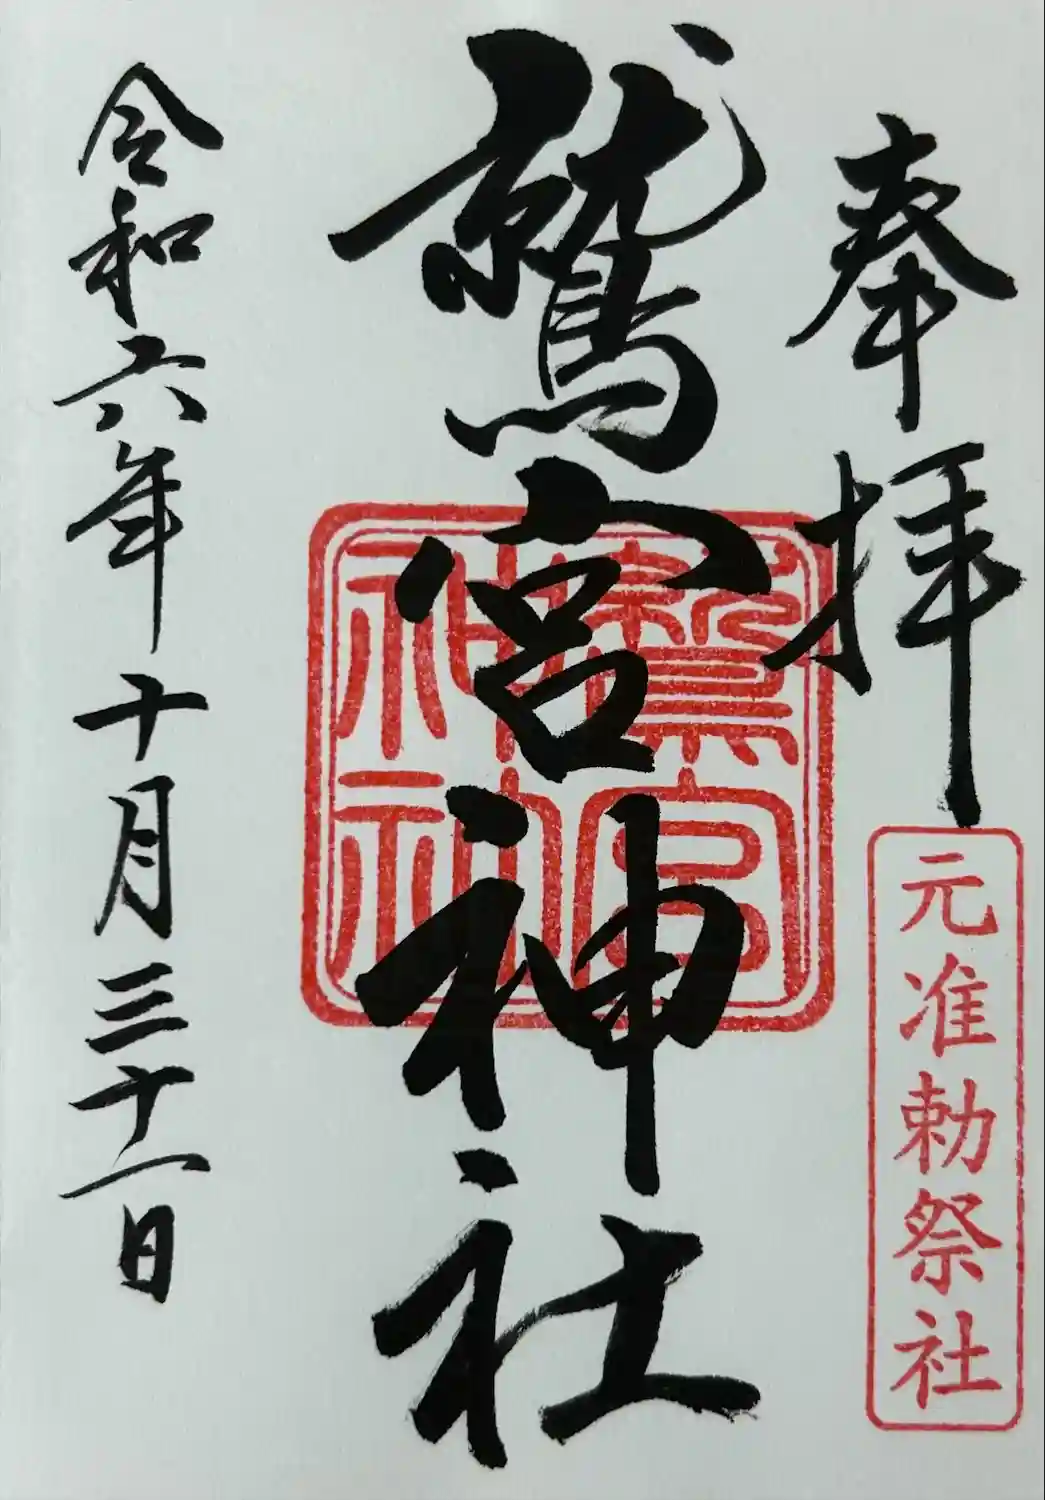 奉拝
元准勅祭社
鷲宮神社
鷲宮
神社
令和六年十月三十一日